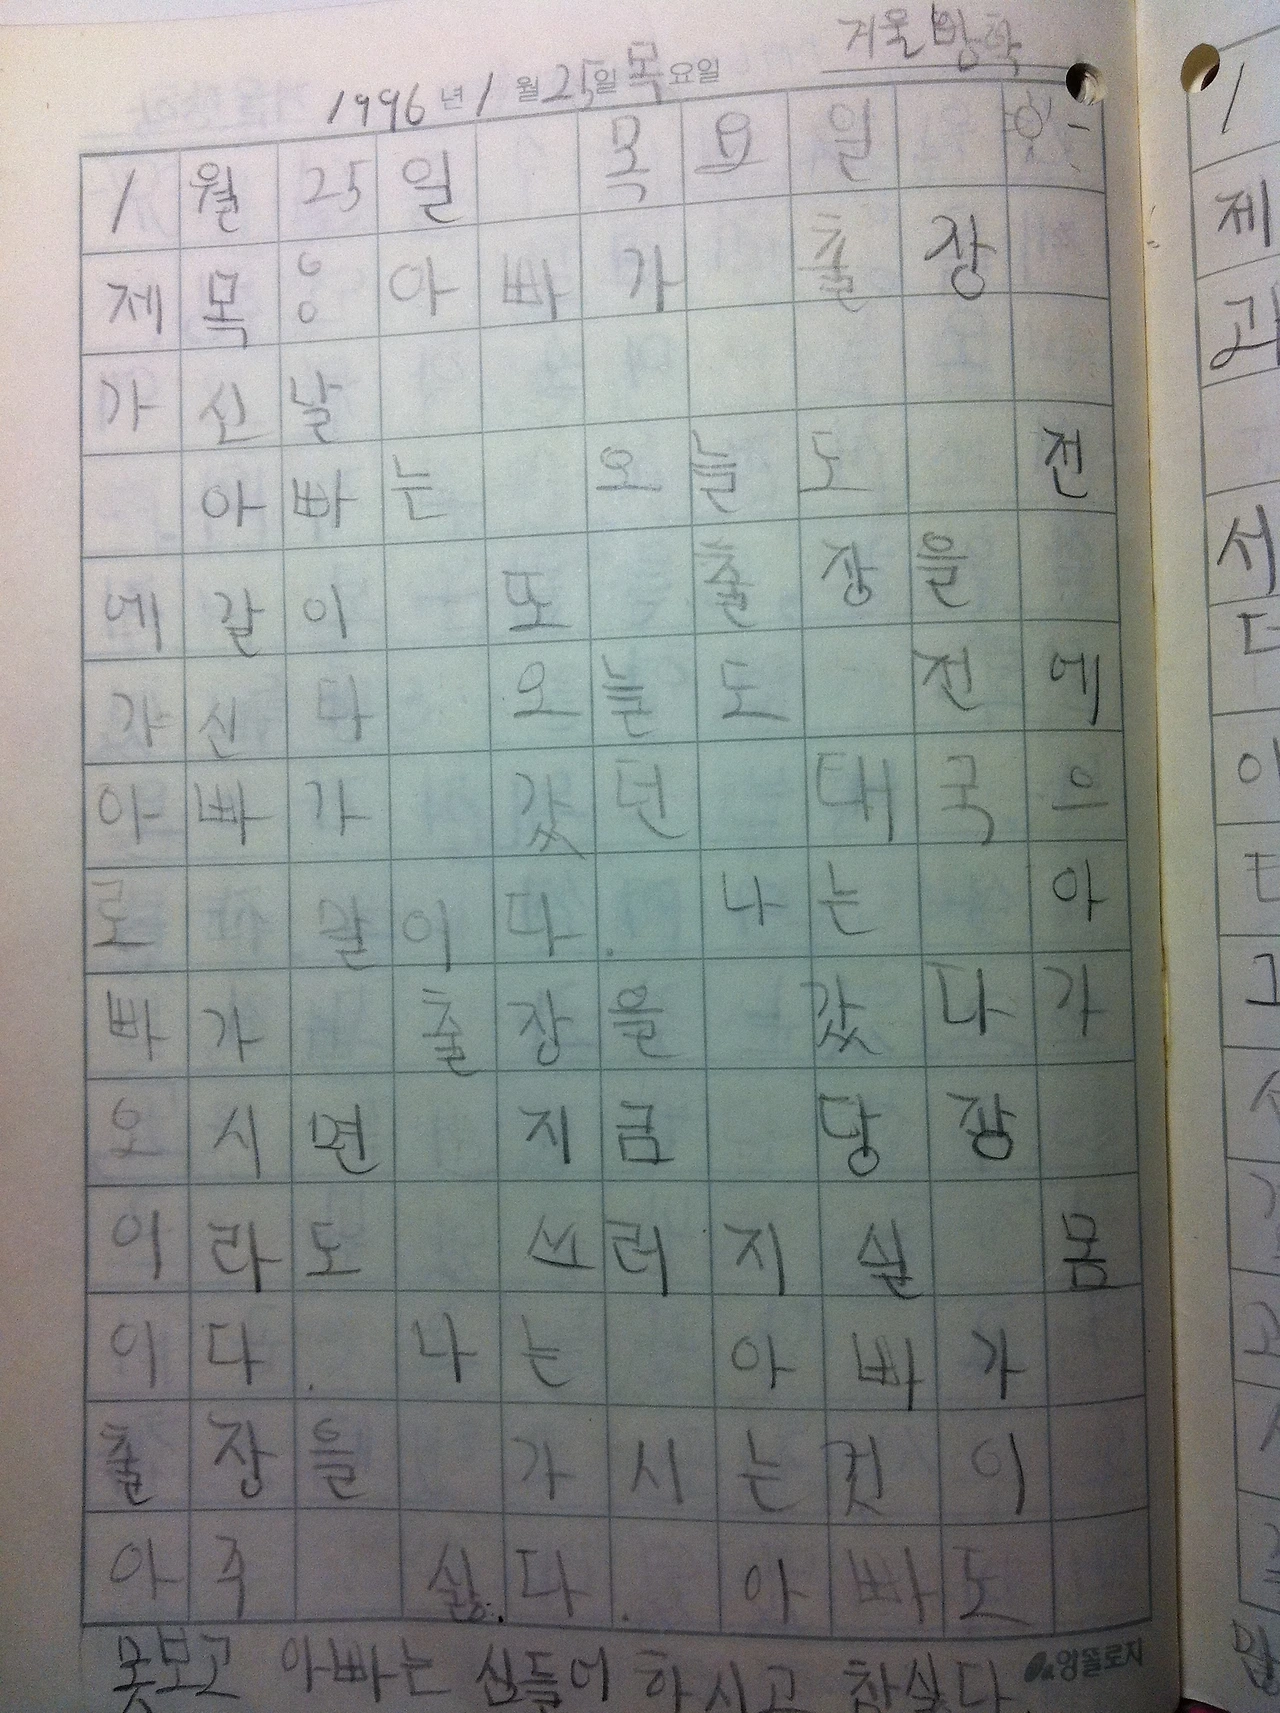 겨울방학
1996년 1월 25일 목요일
1월 25일 목요일
제목: 아빠가 출장
가신날
아빠는 오늘도 전
에 갈이 또 출장을
가신다 오늘도 전에
아빠가 갔던 태국으
로 말이다. 나는 아
빠가 출장을 갔다가
오시면 지금 당장
이라도 쓰러지실 몸
이다. 나는 아빠가
출장을 가시는것이
아주 싫다. 아빠도
못보고 아빠는 힘들어 하시고 참싫다.
양올로지
1
제
서